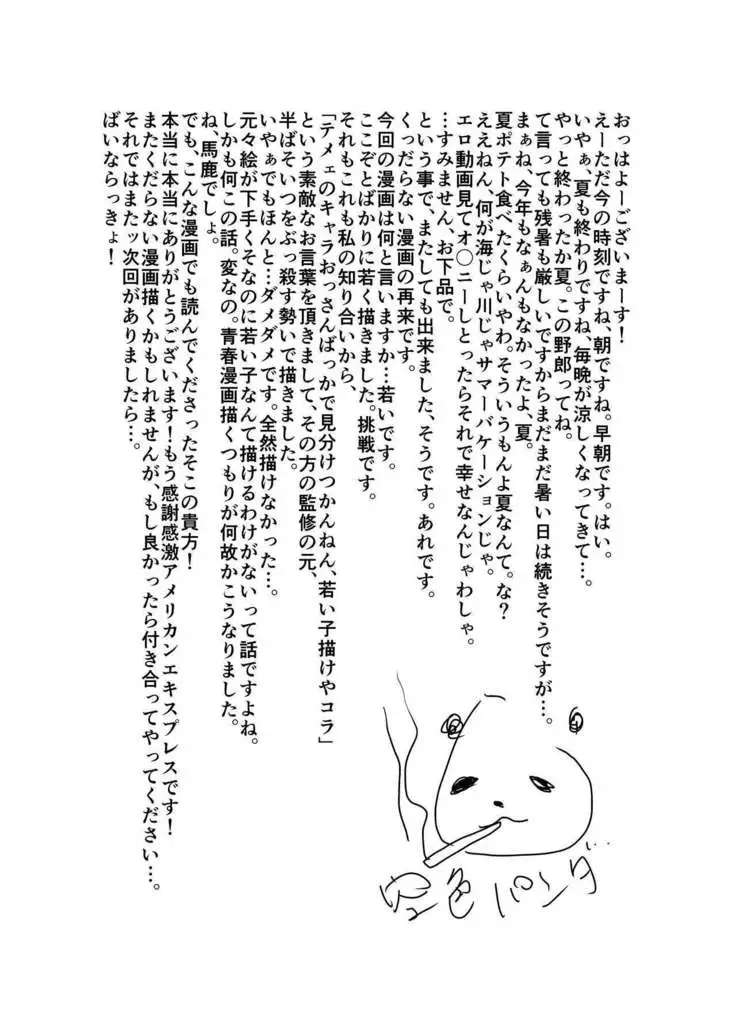 おっはよーございまーす!
えーただ今の時刻ですね、朝ですね。早朝です。はい。
いやぁ、夏も終わりですね、毎晩が涼しくなってきて…。
やっと終わったか夏。この野郎ってね。
て言っても残暑も厳しいですからまだまだ暑い日は続きそうですが…。
まぁね、今年もなぁんもなかったよ、夏。
夏ポテト食べたくらいやわ。そういうもんよ夏なんて。な?
ええねん、何が海じゃ川じゃサマーバケーションじゃ。
エロ動画見てオ〇ニーしとったらそれで幸せなんじゃわしゃ。
…すみません、お下品で。
という事で、またしても出来ました、そうです。あれです。
くっだらない漫画の再来です。
今回の漫画は何と言いますか…若いです。
ここぞとばかりに若く描きました。挑戦です。
それもこれも私の知り合いから、
「テメェのキャラおっさんばっかで見分けつかんねん、若い子描けやコラ」
という素敵なお言葉を頂きまして、その方の監修の元、
半ばそいつをぶっ殺す勢いで描きました。
いやぁでもほんと…ダメダメです。全然描けなかった…。
元々絵が下手くそなのに若い子なんて描けるわけがないって話ですよね。
しかも何この話。変なの。青春漫画描くつもりが何故かこうなりました。
ね、馬鹿でしょ。
でも、こんな漫画でも読んでくださったそこの貴方!
本当に本当にありがとうございます!もう感謝感激アメリカンエキスプレスです!
またくだらない漫画描くかもしれませんが、もし良かったら付き合ってやってください…。
それではまたッ次回がありましたら…。
ばいならっきょ!
空色パンダ…